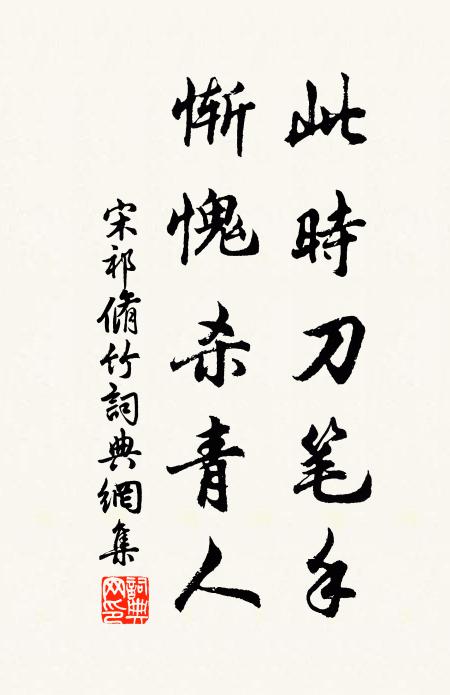 此時刀笔手
慚愧杀青人
宋祁脩竹詞典網集
詞典网印